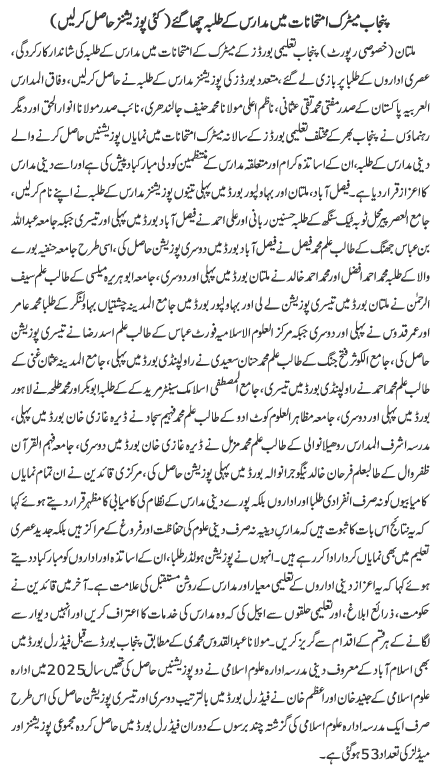 پنجاب میٹرک امتحانات میں مدارس کے طلبہ چھا گئے (کئی پوزیشنز حاصل کرلیں)
ملتان (خصوصی رپورٹ) پنجاب تعلیمی بورڈز کے میٹرک کے امتحانات میں مدارس کے طلبہ کی شاندار کارکردگی،
عصری اداروں کے طلبا پر بازی لے گئے، متعدد بورڈز کی پوزیشنز مدارس کے طلبہ نے حاصل کرلیں، وفاق المدارس
العربیہ پاکستان کے صدر مفتی محمد تقی عثمانی، ناظم اعلی مولانا محمد حنیف جالندھری، نائب صدر مولانا انوار الحق اور دیگر
رہنماؤں نے پنجاب بھر کے مختلف تعلیمی بورڈز کے سالانہ میٹرک امتحانات میں نمایاں پوزیشنیں حاصل کرنے والے
دینی مدارس کے طلبہ، ان کے اساتذہ کرام اور متعلقہ مدارس کے منتظمین کو دلی مبارکباد پیش کی ہے اور اسے دینی مدارس
کا اعزاز قرار دیا ہے۔ فیصل آباد، ملتان اور بہاولپور بورڈ میں پہلی تینوں پوزیشنز مدارس کے طلبہ نے اپنے نام کرلیں،
جامع العصر پیرمحل ٹوبہ ٹیک سنگھ کے طلبا حسنین ربانی اور علی احمد نے فیصل آباد بورڈ میں پہلی اور تیسری جبکہ جامعہ عبداللہ
بن عباس جھنگ کے طالب علم محمد فیصل نے فیصل آباد بورڈ میں دوسری پوزیشن حاصل کی، اسی طرح جامعہ حنفیہ بورے
والا کے طلبہ محمد احمد افضل اور محمد احمد خالد نے ملتان بورڈ میں پہلی اور دوسری، جامعہ ابوہریرہ میلسی کے طالب علم سیف
الرحمٰن نے ملتان بورڈ میں تیسری پوزیشن لے لی اور بہاولپور بورڈ میں جامع المدینہ چشتیاں بہاولنگر کے طلبا محمد عامر
اور عمر قدوس نے پہلی اور دوسری جبکہ مرکز العلوم الاسلامیہ فورٹ عباس کے طالب علم اسد رضا نے تیسری پوزیشن
حاصل کی، جامع الکوثر فتح جنگ کے طالب علم محمد حنان سعیدی نے راولپنڈی بورڈ میں پہلی، جامع المدینہ عثمان غنی کے
طالب علم محمد احمد نے راولپنڈی بورڈ میں تیسری، جامع المصطفی اسلامک سینٹر مریدکے کے طلبہ ابوبکر اور محمد طلحہ نے لاہور
بورڈ میں پہلی اور دوسری، جامعہ مظاہر العلوم کوٹ ادو کے طالب علم محمد فہیم سجاد نے ڈیرہ غازی خان بورڈ میں پہلی،
مدرسہ اشرف المدارس روھیلانوالی کے طالب علم محمد مزمل نے ڈیرہ غازی خان بورڈ میں دوسری، جامعہ فہم القرآن
ظفروال کے طالبعلم فرحان خالد نیگوجرانوالہ بورڈ میں پہلی پوزیشن حاصل کی، مرکزی قائدین نے ان تمام نمایاں
کامیابیوں کو نہ صرف انفرادی طلبا اور اداروں بلکہ پورے دینی مدارس کے نظام کی کامیابی کا مظہر قرار دیتے ہوئے کہا
کہ یہ نتائج اس بات کا ثبوت ہیں کہ مدارس دینیہ نہ صرف دینی علوم کی حفاظت اور فروغ کے مراکز ہیں بلکہ جدید عصری
تعلیم میں بھی نمایاں کردار ادا کر رہے ہیں۔ انہوں نے پوزیشن ہولڈر طلبا، ان کے اساتذہ اور اداروں کو مبارکباد دیتے
ہوئے کہا کہ یہ اعزاز دینی اداروں کے تعلیمی معیار اور مدارس کے روشن مستقبل کی علامت ہے۔ آخر میں قائدین نے
حکومت، ذرائع ابلاغ، اور تعلیمی حلقوں سے اپیل کی کہ وہ مدارس کی خدمات کا اعتراف کریں اور انہیں دیوار سے
لگانے کے ہر قسم کے اقدام سے گریز کریں۔ مولانا عبدالقدوس محمدی کے مطابق پنجاب بورڈ سے قبل فیڈرل بورڈ میں
بھی اسلام آباد کے معروف دینی مدرسہ ادارہ علوم اسلامی نے دو پوزیشنیں حاصل کی تھیں سال 2025 میں ادارہ
علوم اسلامی کے جنید خان اور اعظم خان نے فیڈرل بورڈ میں بالترتیب دوسری اور تیسری پوزیشن حاصل کی اس طرح
صرف ایک مدرسہ ادارہ علوم اسلامی کی گزشتہ چند برسوں کے دوران فیڈرل بورڈ میں حاصل کردہ مجموعی پوزیشنز اور
میڈلز کی تعداد 53 ہوگئی ہے۔